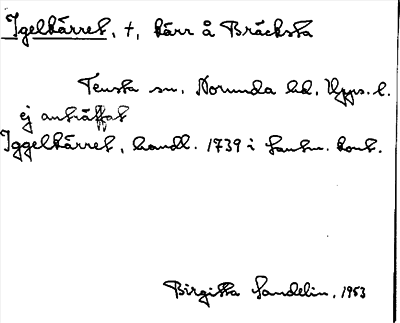 Igelkärret, +, kärr å Bräcksta
Tensta sn, Norunda hd, Upps. l.
ej anträffat
Iggelkärret, handl. 1739 i Lantm. kont.
Birgitta Sandelin, 1953